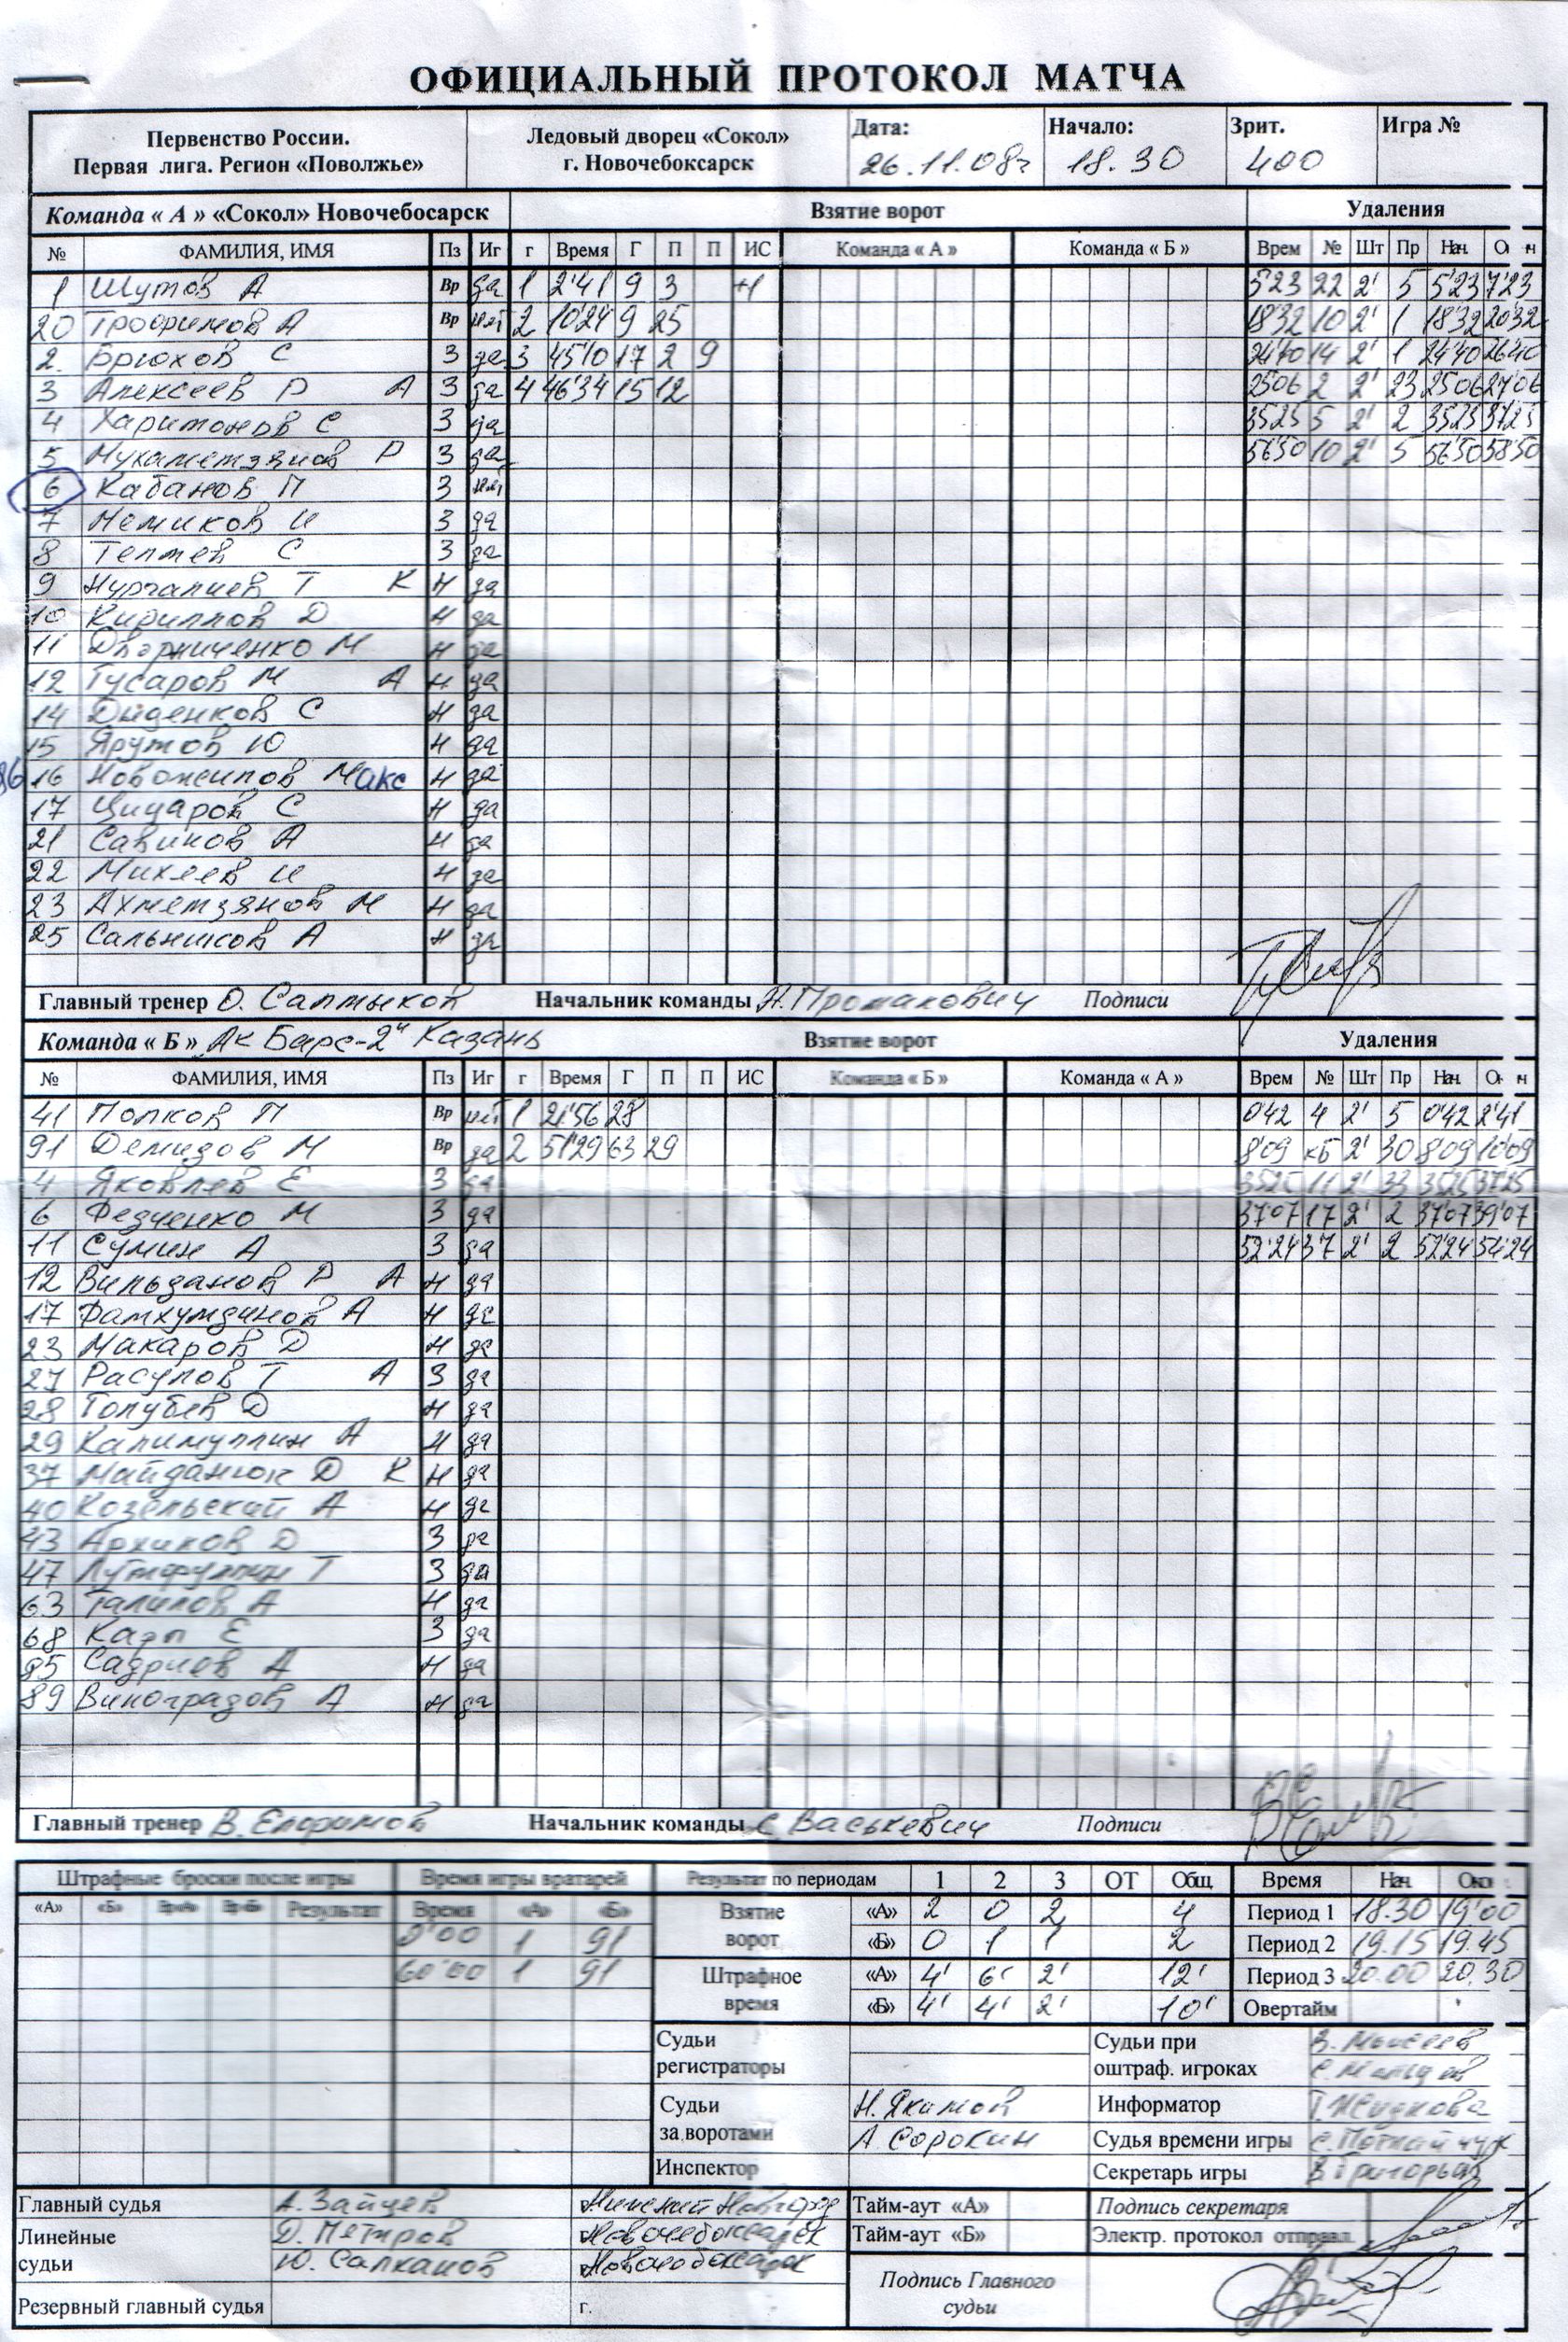 ОФИЦИАЛЬНЫЙ ПРОТОКОЛ МАТЧА
Первенство России. Первая лига. Регион «Поволжье»
Ледовый дворец «Сокол» г. Новочебоксарск
Дата: 26.11.08г
Начало: 18.30
Зрит. 400
Игра №
Команда « А » «Сокол» Новочебосарск Взятие ворот Удаления
№ ФАМИЛИЯ, ИМЯ Пз Иг г Время Г П П ИС Команда « А » Команда « Б » Врем № Шт Пр Нач. Ок н
1 Шутов А Вр да 1 2'41 9 3 +1 5'23 22 2' 5 5'23 7'23
20 Трофимов А Вр нет 2 10'24 9 25 18'32 10 2' 1 18'32 20'32
2. Брюхов С З да 3 45'10 17 2 9 24'40 14 2' 1 24'40 26'40
3 Алексеев Р А З да 4 46'34 15 12 25'06 2 2' 23 25'06 27'06
4 Харитонов С З да 35'25 5 2' 2 35'25 37'25
5 Мухаметзянов Р З да 56'50 10 2' 5 56'50 58'50
6 Кабанов П З нет
7 Немиков И З да
8 Тептев С З да
9 Нургалиев Т К Н да
10 Кириллов D Н да
11 Дворниченко М Н да
12 Гусаров М А Н да
14 Диденков С Н да
15 Ярутов Ю Н да
16 Новожилов Макс Н да
17 Цицаров С Н да
21 Савинов А Н да
22 Михеев И Н да
23 Ахметзянов М Н да
25 Сальников А Н да
Главный тренер О. Салтыков Начальник команды Н. Промакович Подписи
Команда « Б » Ак Барс-2" Казань Взятие ворот Удаления
№ ФАМИЛИЯ, ИМЯ Пз Иг г Время Г П П ИС Команда « Б » Команда « А » Врем № Шт Пр Нач. Ок н
41 Полков П Вр нет 1 21'56 28 0'42 4 2' 5 0'42 2'41
91 Демидов М Вр да 2 51'29 63 29 8'09 кБ 2' 30 8'09 10'09
4 Яковлев Е З да 35'25 11 2' 33 35'25 37'25
6 Федченко М З да 37'07 17 2' 2 37'07 39'07
11 Сумин А З да 52'24 37 2' 2 52'24 54'24
12 Вильданов Р А Н да
17 Фатхутдинов А Н да
23 Макаров D Н да
27 Расулов Т А З да
28 Голубев D Н да
29 Калимуллин А Н да
37 Майданюк D К Н да
40 Козельский А Н да
43 Архипов D З да
47 Лутфуллин Т З да
63 Талипов А Н да
68 Е З да
85 Садриев А Н да
89 Виноградов А Н да
Главный тренер В. Начальник команды С. Васькевич Подписи
Штрафные броски после игры Время игры вратарей Результат по периодам 1 2 3 ОТ Общ. Время Нач. Окон
«А» «Б» Вр«А» Вр«Б» Результат Время «А» «Б» Взятие ворот «А» 2 0 2 4 Период 1 18.30 19'00
0'00 1 91 «Б» 0 1 1 2 Период 2 19.15 19.45
60'00 1 91 Штрафное время «А» 4' 6' 2' 12' Период 3 20.00 20.30
«Б» 4' 4' 2' 10' Овертайм
Судьи регистраторы Судьи при оштраф. игроках В. Моисеев
Судьи за воротами Н. Якимов Информатор
А. Сорокин Судья времени игры
Инспектор Секретарь игры В Григорьев
Главный судья А. Зайцев Нижний Новгород Тайм-аут «А» Подпись секретаря
Линейные судьи Д. Петров Новочебоксарск Тайм-аут «Б» Электр. протокол отправл.
Ю. Салканов Новочебоксарск Подпись Главного судьи
Резервный главный судья г.